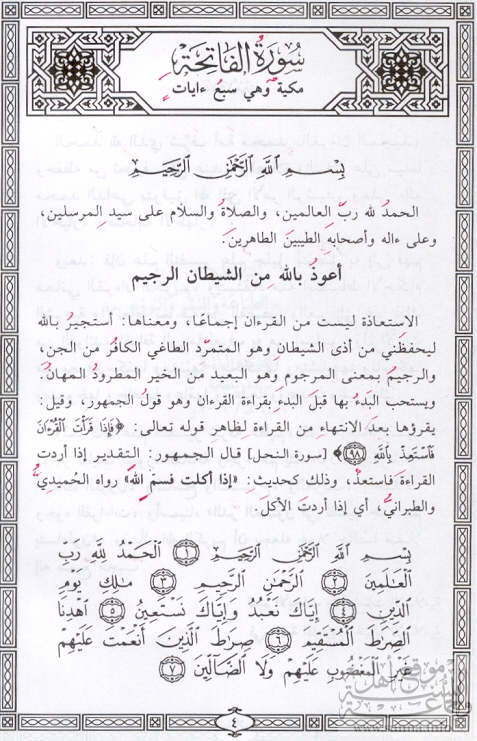 سُورَةُ الفَاتِحَة
مكية وهي سبعُ ءايات
بِسْمِ اللَّهِ الرَّحْمَٰنِ الرَّحِيمِ
الحمدُ لله ربّ العالمين، والصلاةُ والسلام على سيد المرسلين،
وعلى ءاله وأصحابِه الطيبينَ الطاهرين.
أعوذُ بالله من الشيطان الرجيم
الاستعاذة ليست من القرءان إجماعًا، ومعناها: أستجيرُ بالله
ليحفظَني من أذى الشيطانِ وهو المتمرّد الطاغي الكافرُ من الجن،
والرجيمُ بمعنى المرجوم وهو البعيد من الخير المطرودُ المهانُ.
ويستحب البدءُ بها قبلَ البدءِ بقراءة القرءان وهو قولُ الجمهور، وقيل:
يقرؤها بعدَ الانتهاء من القراءة لظاهر قوله تعالى: ﴿فَإِذَا قَرَأْتَ الْقُرْءَانَ
فَاسْتَعِذْ بِاللَّهِ ﴿٩٨﴾﴾ [سورة النحل] قال الجمهور: التقدير إذا أردت
القراءة فاستعذْ، وذلك كحديث: «إذا أكلت فسمّ اللهَ» رواه الحُميديُّ
والطبرانيُّ، أي إذا أردتَ الأكلَ.
بِسْمِ اللَّهِ الرَّحْمَٰنِ الرَّحِيمِ ﴿١﴾ الْحَمْدُ لِلَّهِ رَبِّ
الْعَالَمِينَ ﴿٢﴾ الرَّحْمَٰنِ الرَّحِيمِ ﴿٣﴾ مَالِكِ يَوْمِ
الدِّينِ ﴿٤﴾ إِيَّاكَ نَعْبُدُ وَإِيَّاكَ نَسْتَعِينُ ﴿٥﴾ اهْدِنَا
الصِّرَاطَ الْمُسْتَقِيمَ ﴿٦﴾ صِرَاطَ الَّذِينَ أَنْعَمْتَ عَلَيْهِمْ
غَيْرِ الْمَغْضُوبِ عَلَيْهِمْ وَلَا الضَّالِّينَ ﴿٧﴾
٤